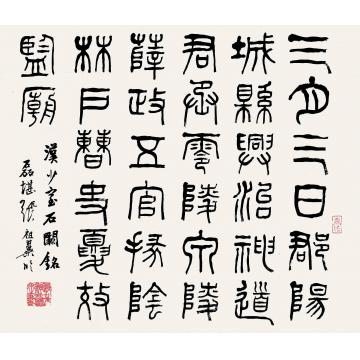 三月三日郡陽
城縣興治神道
君丞零陵泉陵
薛政五官掾陰
林戶曹史夏效
監廟
漢少室石闕銘
磊堪張祖翼